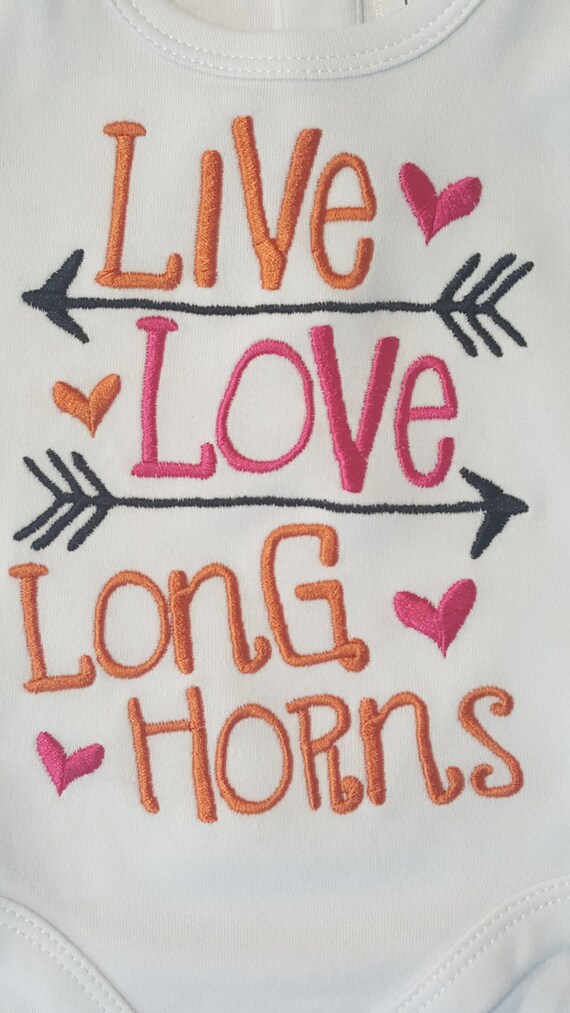 Live
Love
Long
Horns